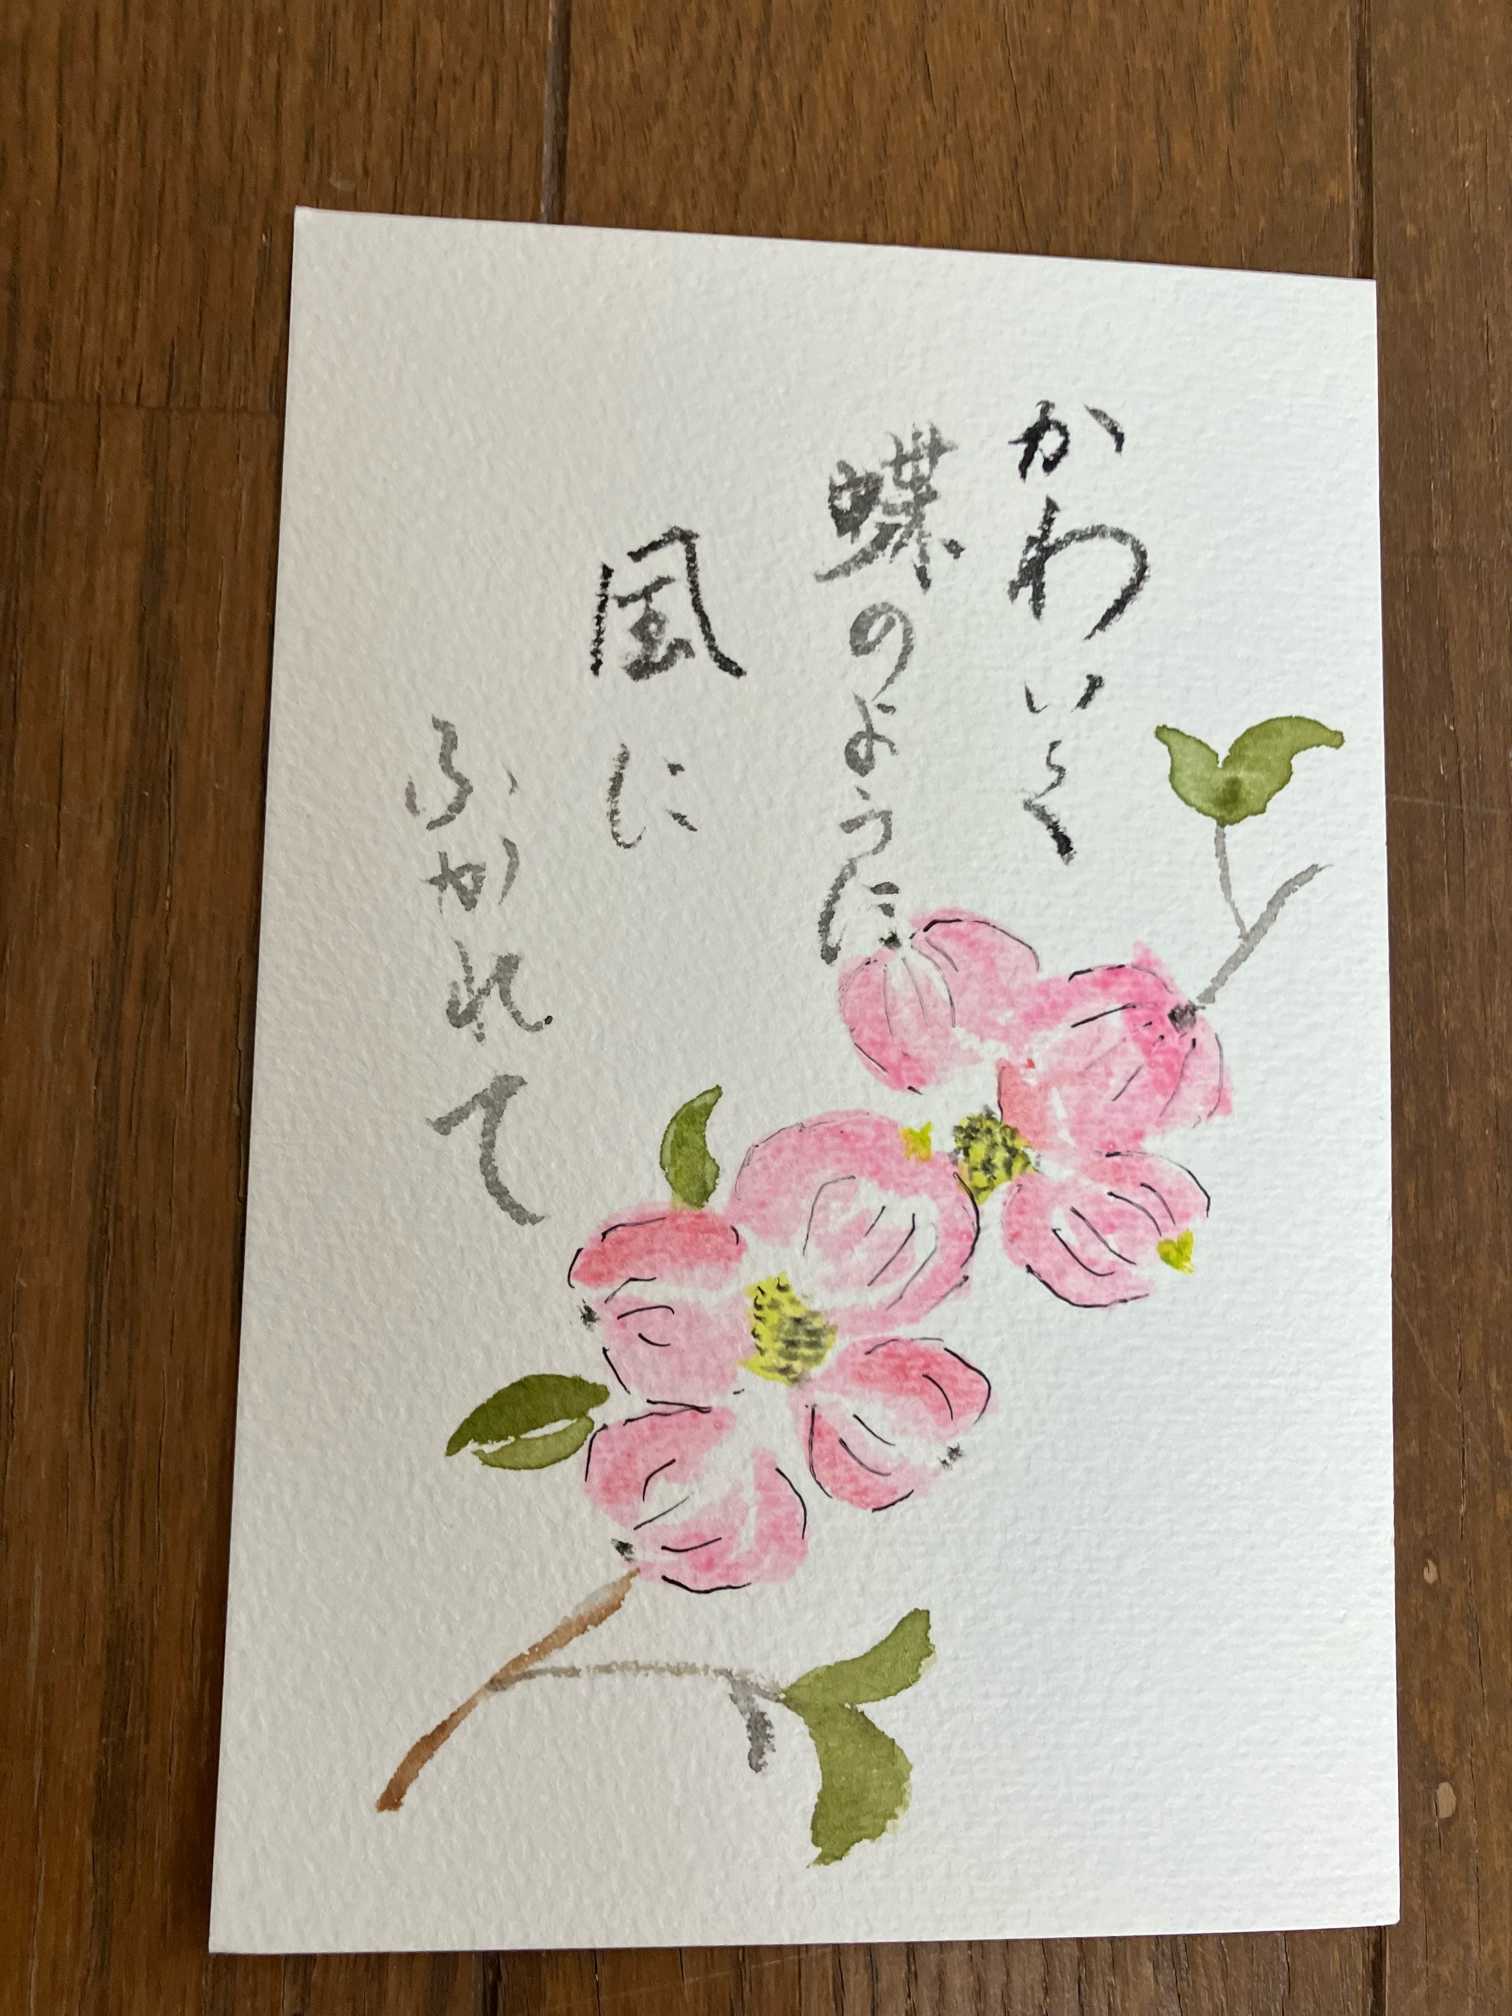 かわいく
蝶のように
風に
ふかれて